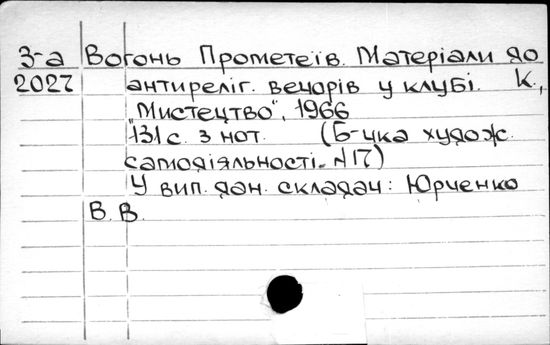 3-а Вогонь Прометеїв. Матеріали до
2027 антиреліг. вечорів у клубі. К.,
"Мистецтво", 1966
131 с. з нот. (Б-чка худож.
самодіяльності. №17)
У вип. дан. складач: Юрченко
В. В.